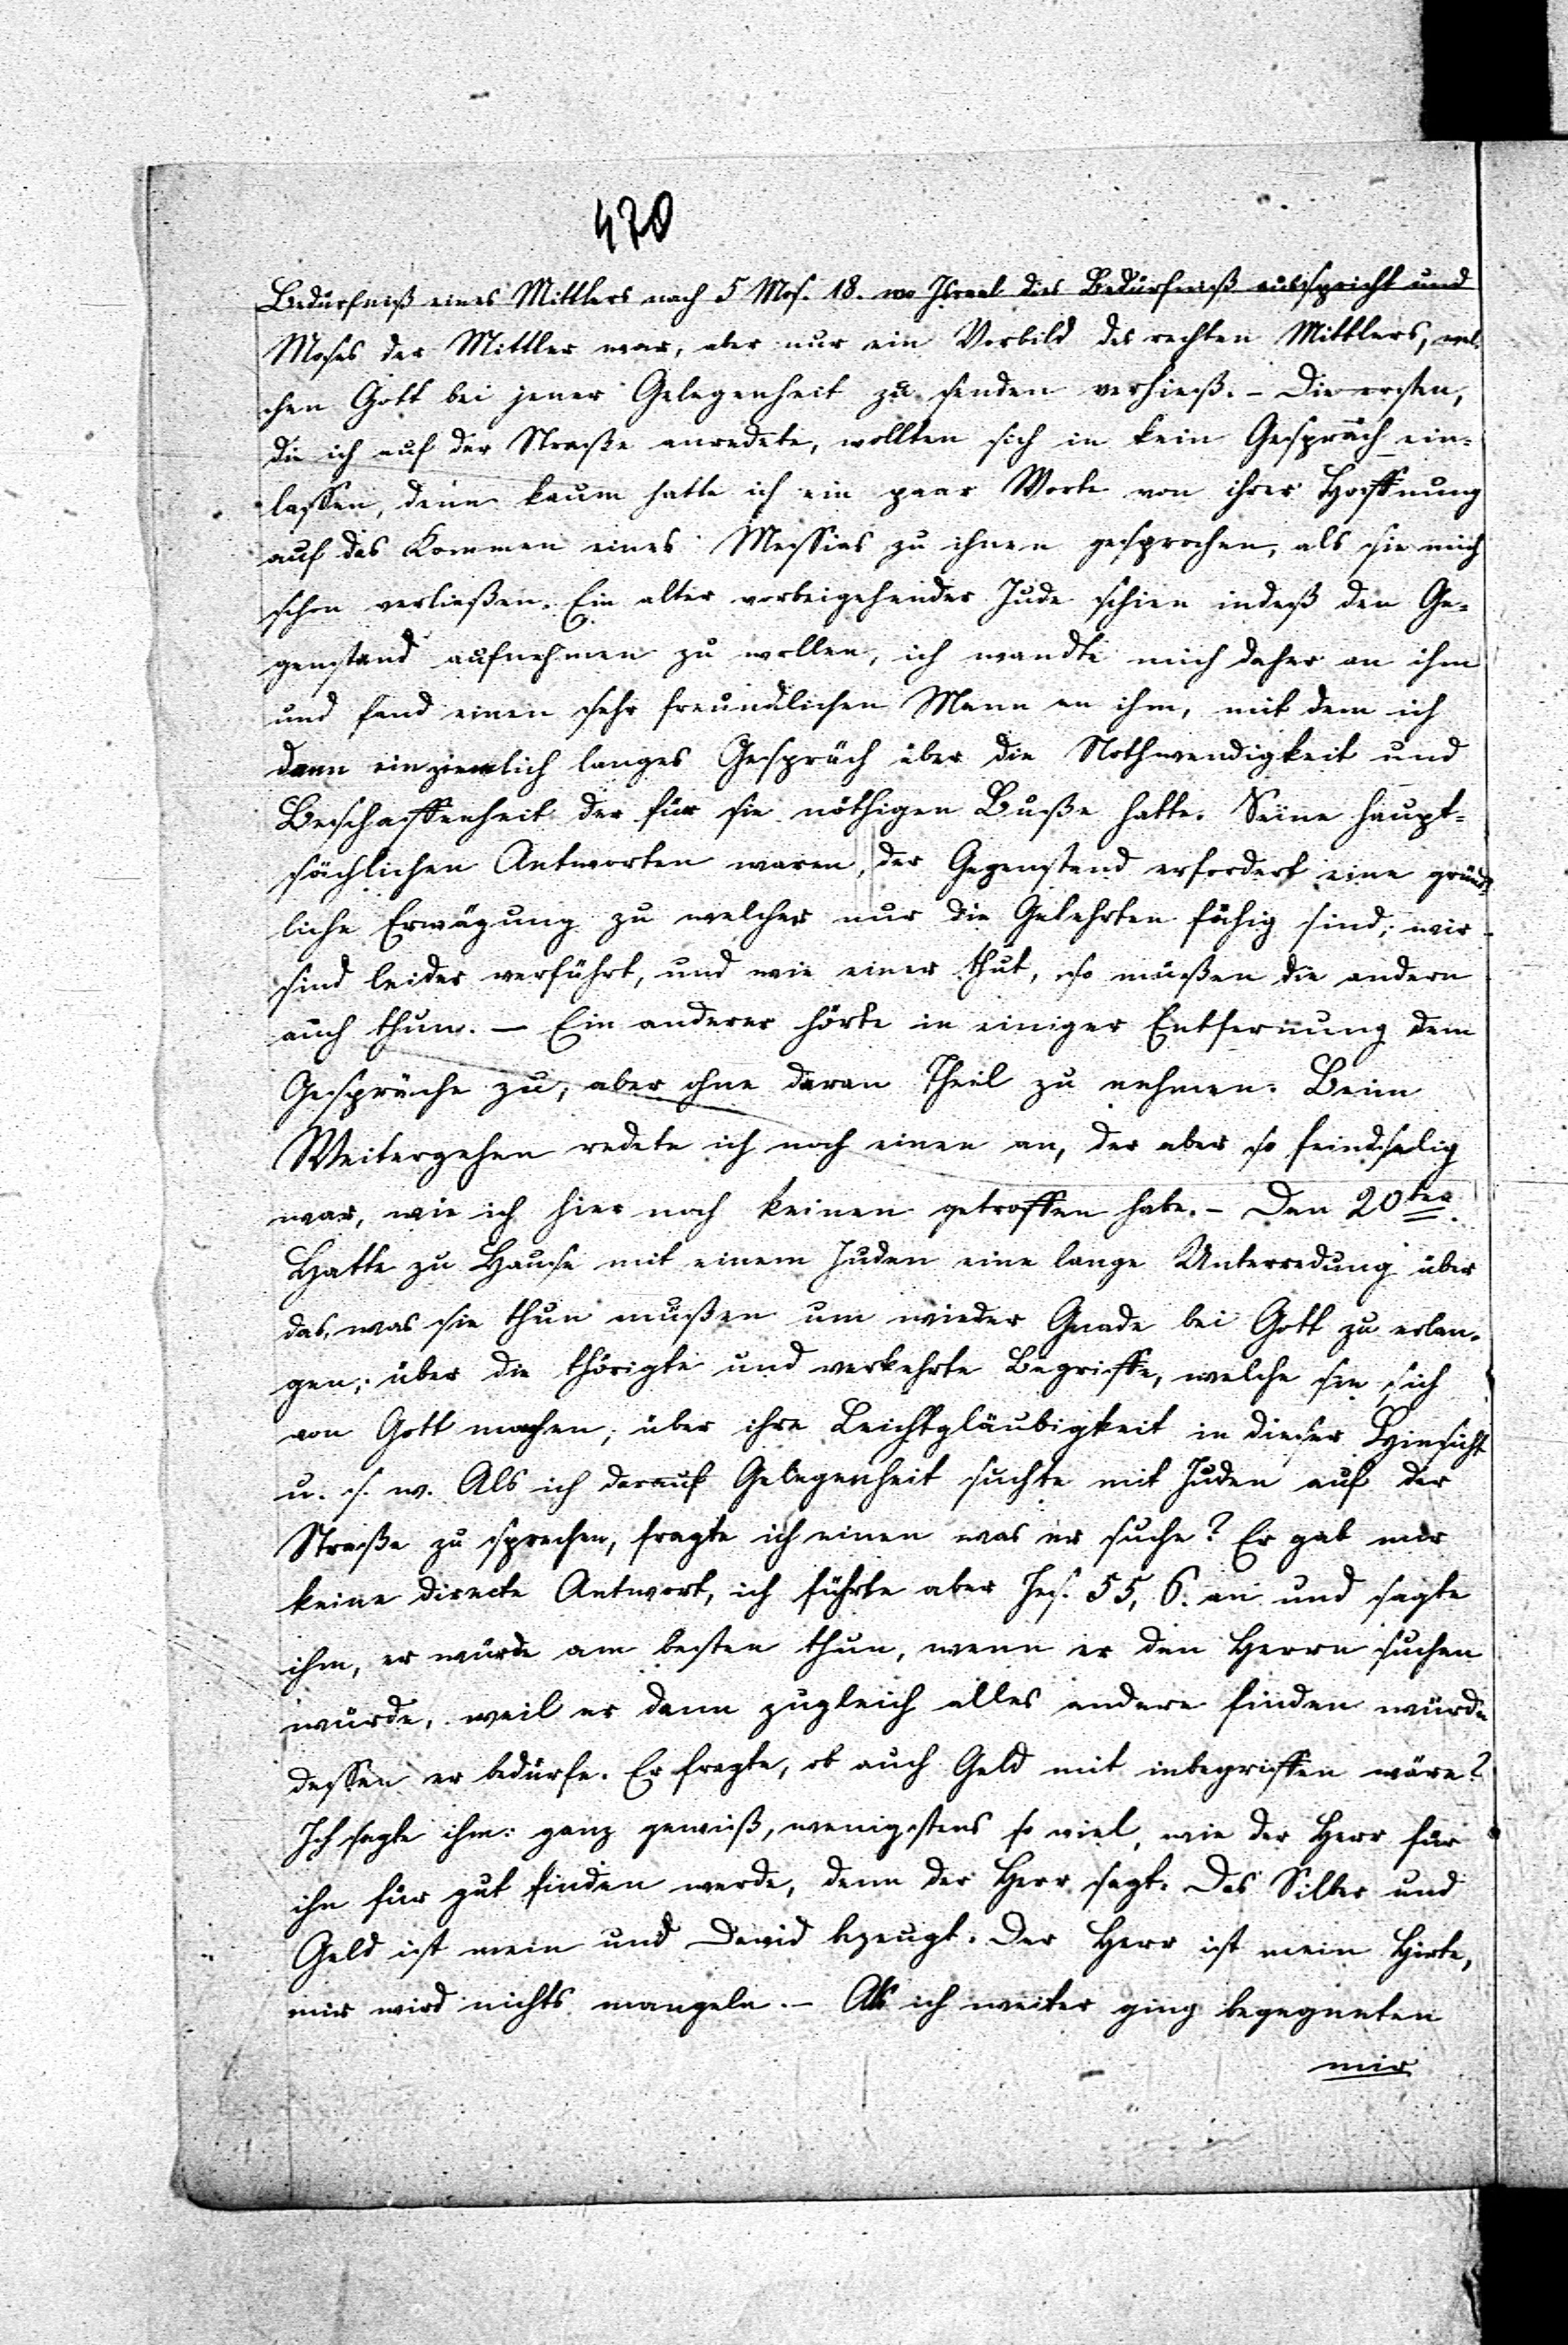 470
Bedürfniß eines Mittlers nach 5 Mos. 18. wo Israel dies Bedürfniß ausspricht und
Moses der Mittler war, aber nur ein Vorbild des rechten Mittlers, wel-
chen Gott bei jener Gelegenheit zu senden verhieß. – Die ersten,
die ich auf der Straße anredete, wollten sich in kein Gespräch ein-
lassen, denn kaum hatte ich ein paar Worte von ihrer Hoffnung
auf das Kommen eines Messias zu ihnen gesprochen, als sie mich
schon verließen. Ein alter vorbeigehender Jude schien indeß den Ge-
genstand aufnehmen zu wollen, ich wandte mich daher an ihm
und fand einen sehr freundlichen Mann an ihm, mit dem ich
dann ein ziemlich langes Gespräch über die Nothwendigkeit und
Beschaffenheit der für sie nöthigen Buße hatte. Seine haupt-
sächlichen Antworten waren, der Gegenstand erfordert eine gründ-
liche Erwägung zu welcher nur die Gelehrten fähig sind; wir
sind leider verführt, und wie einer thut, so müßen die andern
auch thun. – Ein anderer hörte in einiger Entfernung dem
Gespräche zu, aber ohne daran Theil zu nehmen. Beim
Weitergehen redete ich noch einen an, der aber so feindselig
war, wie ich hier noch keinen getroffen habe. – Den 20ten.
Hatte zu Hause mit einem Juden eine lange Unterredung über
das, was sie thun müßen um wieder Gnade bei Gott zu erlan-
gen; über die thörigte und verkehrte Begriffe, welche sie sich
von Gott machen; über ihre Leichtgläubigkeit in dieser Hinsicht
u. s. w. Als ich darauf Gelegenheit suchte mit Juden auf der
Straße zu sprechen, fragte ich einen was er suche? Er gab mir
keine directe Antwort, ich führte aber Jes. 55, 6. an und sagte
ihm, er würde am besten thun, wenn er den Herrn suchen
würde, weil er dann zugleich alles andere finden würde
dessen er bedürfe. Er fragte, ob auch Geld mit inbegriffen wäre?
Ich sagte ihm: ganz gewiß, wenigstens so viel, wie der Herr für
ihn für gut finden werde, denn der Herr sagt: Das Silber und
Geld ist mein und David bezeugt: Der Herr ist mein Hirte,
mir wird nichts mangeln. – Als ich weiter ging begegneten
mir